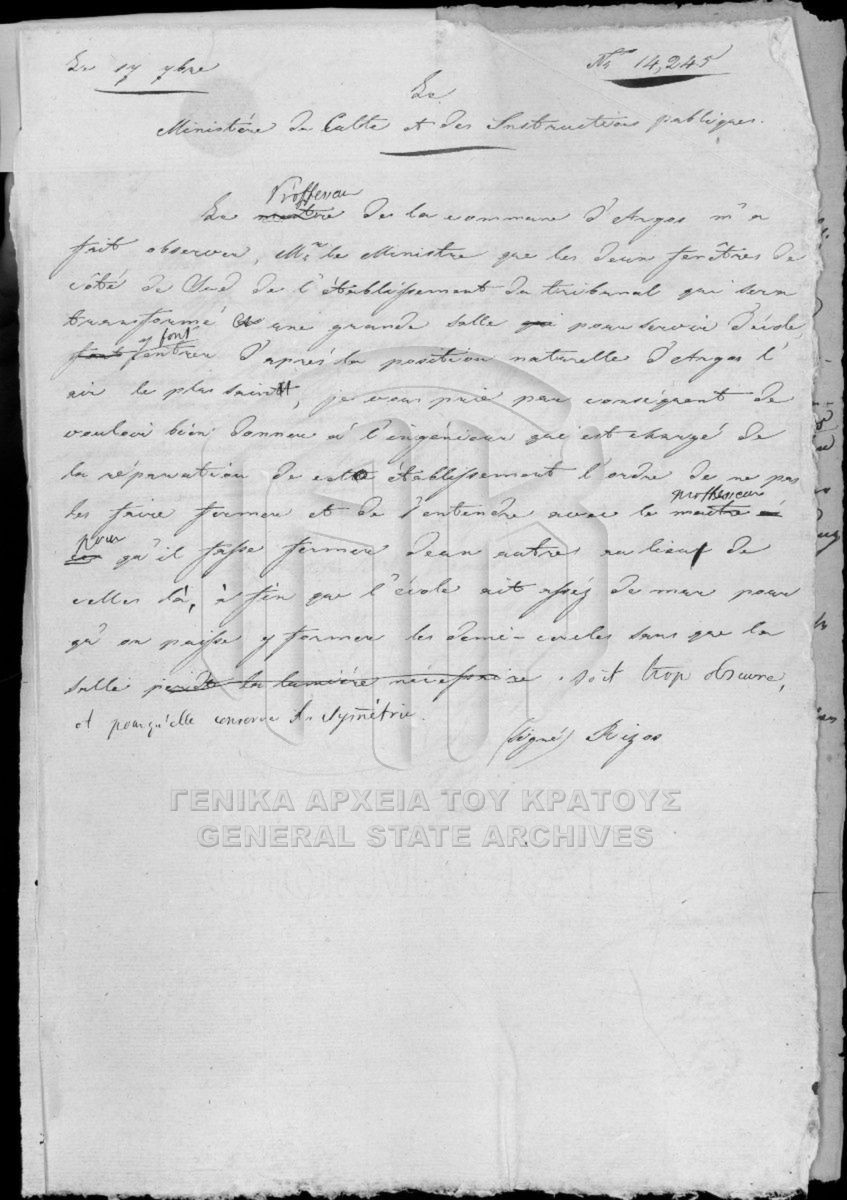 Le 17 9bre
No 14,245
Le
Ministère du Culte et des Instructions publiques.
Proffeseur
Le maitre de la commune d'Argos m'a
fait observer, Mr le Ministre que les deux fenêtres de
côté de Sud de l'établissement du tribunal qui sera
transformé en une grande salle qui pour servir d'école,
y font
font l'entrer d'après la position naturelle d'Argos l'
air le plus saint, je vous prie par conséquent de
vouloir bien donner à l'ingénieur qui est chargé de
la réparation de cette établissement l'ordre de ne pas
proffesseur
les faire fermer et de s'entendre avec le maitre
pour
qu'il fasse fermer deux autres au lieu de
celles là, à fin que l'école ait assez de mur pour
qu'on puisse y former les demi-cercles sans que la
salle perde la lumière nécessaire. soit trop obscure,
et pourqu'elle conserve sa symétrie.
(signé) Rizos
ΓΕΝΙΚΑ ΑΡΧΕΙΑ ΤΟΥ ΚΡΑΤΟΥΣ
GENERAL STATE ARCHIVES